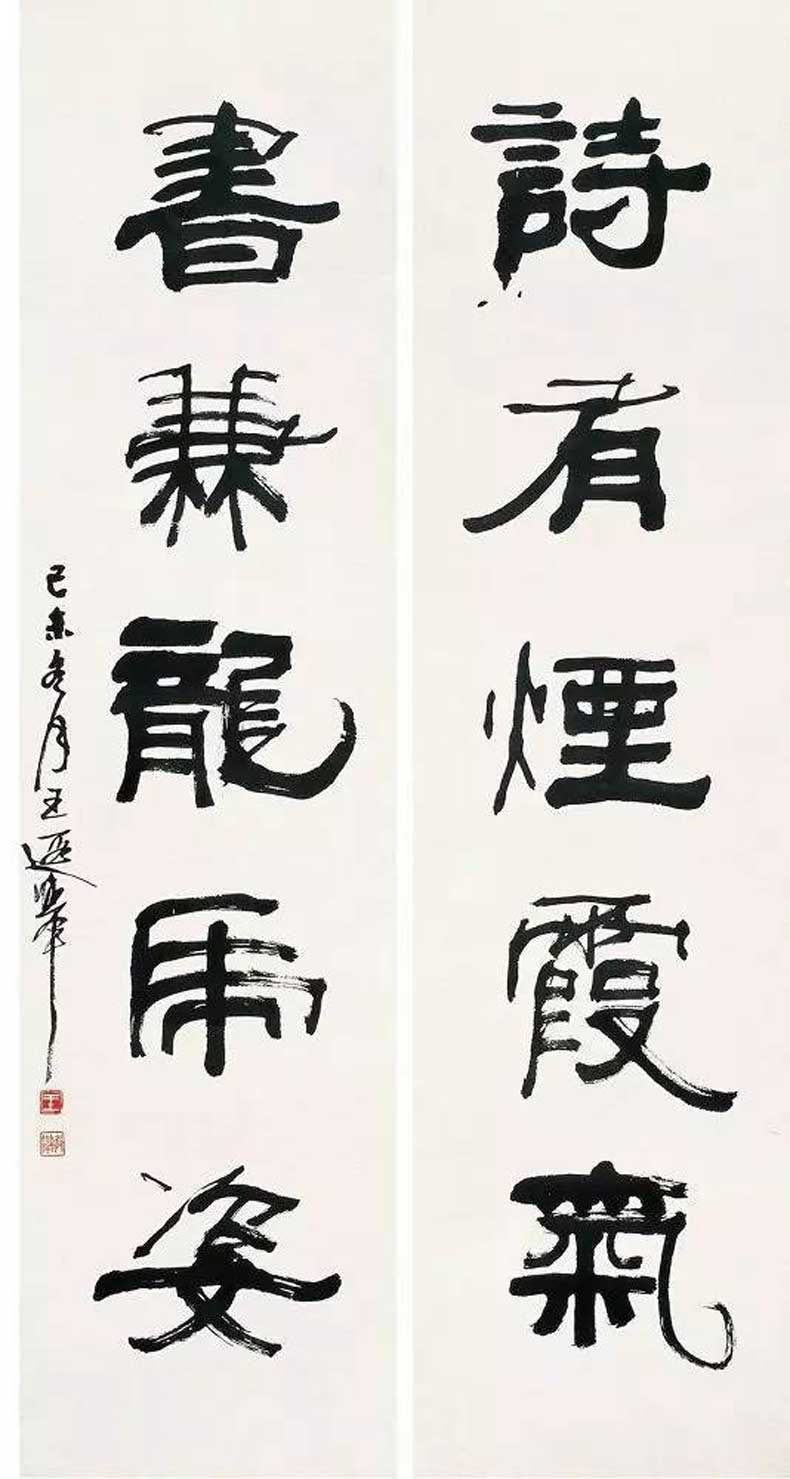 詩有煙霞氣
書兼龍虎姿
己未冬月王遐舉
王